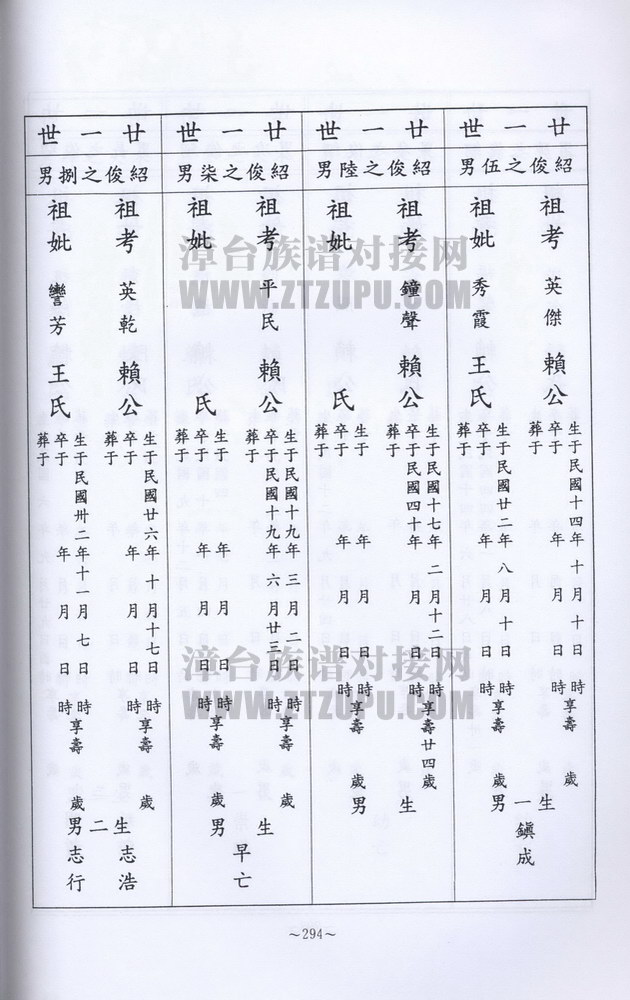 廿一世
紹俊之伍男
祖考 英傑 賴公
生于民國十四年十月十日時享壽歲
卒于年月日
葬于
祖妣 秀霞 王氏
生于民國廿二年八月十日時享壽歲
卒于年月日
葬于
生一男
鎭成
廿一世
紹俊之陸男
祖考 鐘聲 賴公
生于民國十七年二月十二日時享壽廿四歲
卒于民國四十年月日
葬于
祖妣 氏
生于年月日時享壽歲
卒于年月日
葬于
生男
廿一世
紹俊之柒男
祖考 平民 賴公
生于民國十九年三月二日時享壽歲
卒于民國十九年六月廿三日
葬于
祖妣 氏
生于年月日時享壽歲
卒于年月日
葬于
生男
早亡
廿一世
紹俊之捌男
祖考 英乾 賴公
生于民國廿六年十月十七日時享壽歲
卒于年月日
葬于
祖妣 芳 王氏
生于民國卅二年十一月七日時享壽歲
卒于年月日
葬于
生二男
志浩
志行
~294~
漳台族谱对接网
WWW.ZTZUPU.COM
漳台族谱对接网
WWW.ZTZUPU.COM